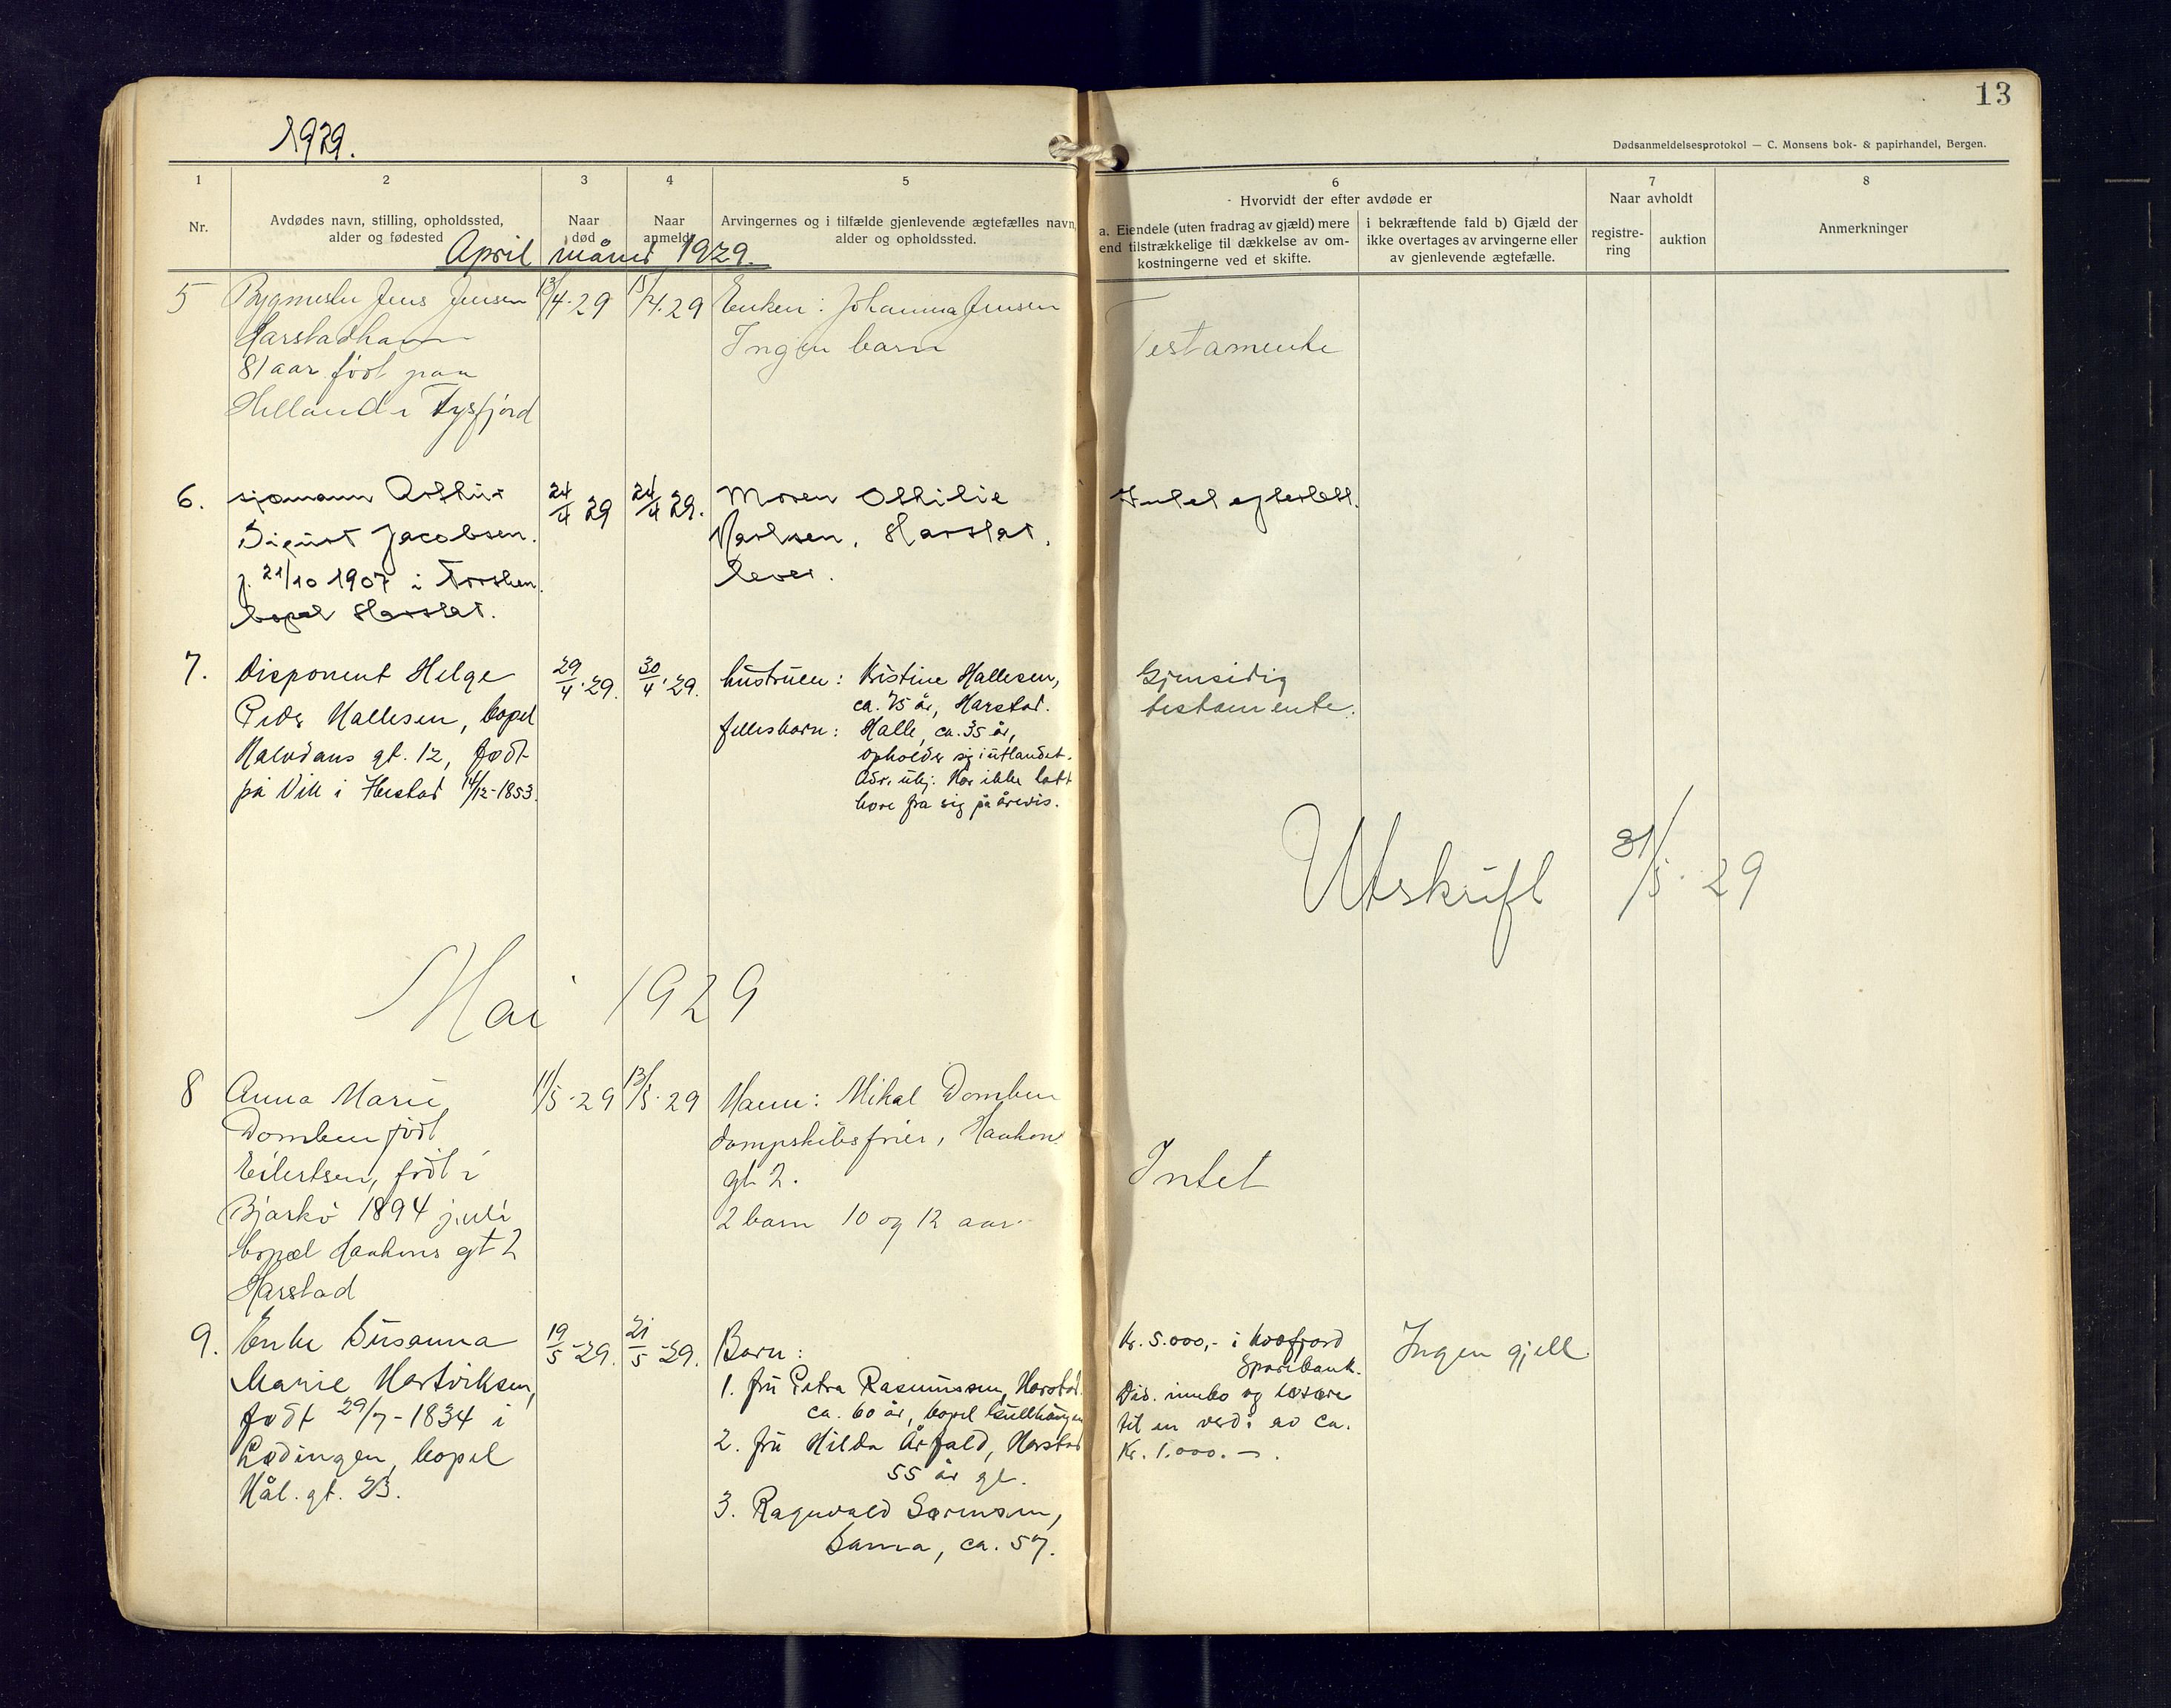 13
1929.
Dødsanmeldelsesprotokol — C. Monsens bok- & papirhandel, Bergen.
1
Nr.
2
Avdødes navn, stilling, opholdssted,
alder og fødested
3
Naar
død
4
Naar
anmeldt
5
Arvingernes og i tilfælde gjenlevende ægtefælles navn,
alder og opholdssted.
6
Hvorvidt der efter avdøde er
a. Eiendele (uten fradrag av gjæld) mere
end tilstrækkelige til dækkelse av om-
kostningerne ved et skifte.
i bekræftende fald b) Gjæld der
ikke overtages av arvingerne eller
av gjenlevende ægtefælle.
7
Naar avholdt
registre-
ring
auktion
8
Anmerkninger
April måned 1929.
5
Bygmester Jens Jensen
Harstadhamn
81 aar født paa
Helland i Tysfjord
13/4.29
15/4.29
Enken: Johanna Jensen
Ingen barn
Testamente
6.
sjømann Arthur
Sigurd Jacobsen.
f. 21/10 1907 i
bopel Harstad.
24/4 29
24/4 29.
Moren Othilie
Karlsen, Harstad,
lever.
Intet efterlatt.
7.
Disponent Helge
Peder Hallesen, bopel
Halvdans gt. 12, født
på Vik i 14/12-1853.
29/4.29.
30/4.29.
hustruen: Kristine Hallesen,
ca. 75 år, Harstad.
fellesbarn: Halle, ca. 35 år,
opholder sig i utlandet.
Adr. ubj. Har ikke latt
høre fra sig på årevis.
Gjensidig
testamente.
Utskrift 31/5.29
Mai 1929
8
Anna Marie
Domben født
Eilertsen, født i
Bjarkö 1894 juli
bopæl Haakons gt 2
Harstad
11/5.29
13/5.29
Mann: Mikal Domben
dampskibsfører, Haakons
gt 2.
2 barn 10 og 12 aar
Intet
9.
Enke Susanna
Marie Hartviksen,
født 29/7-1834 i
Lødingen, bopel
Hål. gt. 23.
19/5-29.
21/5-29.
Barn:
1. fru Petra Rasmussen, Harstad
ca. 60 år, bopel Gullhaugen
2. fru Hilda Årfald, Harstad
55 år gl.
3. Ragnvald Sørensen,
Sama, ca. 57.
Kr. 5.000,- i Kvæfjord
Sparebank.
Div. innbo og løsøre
til en verdi av ca.
Kr. 1.000.-.
Ingen gjell